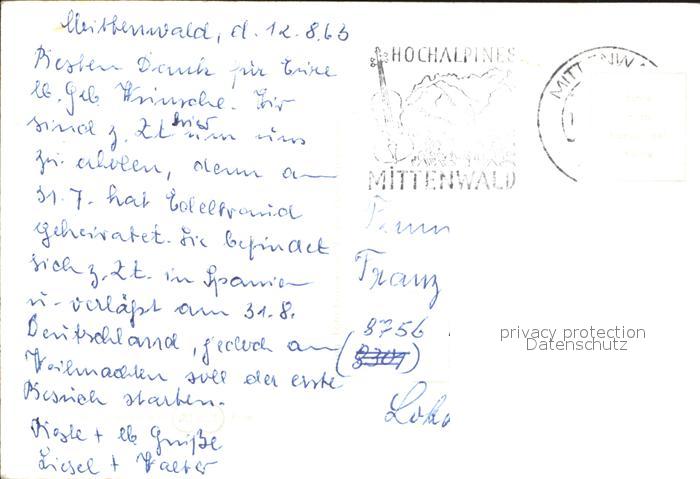 Mittenwald, d. 12.8.63
Besten Dank für Eure
lb. Geb Wünsche. Wir
sind z. Zt hier um uns
zu erholen, denn am
31.7. hat Edeltraud
geheiratet. Sie befindet
sich z. Zt. in Spanien
u. verläßt am 31.8.
Deutschland, jedoch am
Weihnachten soll der erste
Besuch starten.
Beste + lb Grüße
Liesel + Walter
HOCHALPINES
MITTENWALD
MITTENW
Franz
8756
privacy protection
Datenschutz